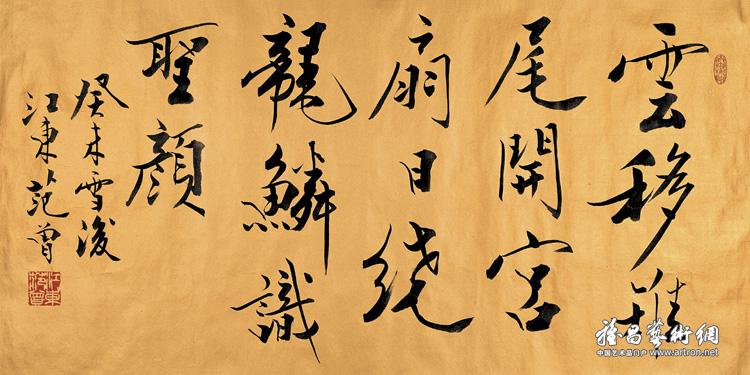 雲移雉
尾開宮
扇日绕
龍鱗識
聖顏
癸未雪後
江東范曾
江東范曾
雅昌藝術網
中国艺术品门户 www.artron.net